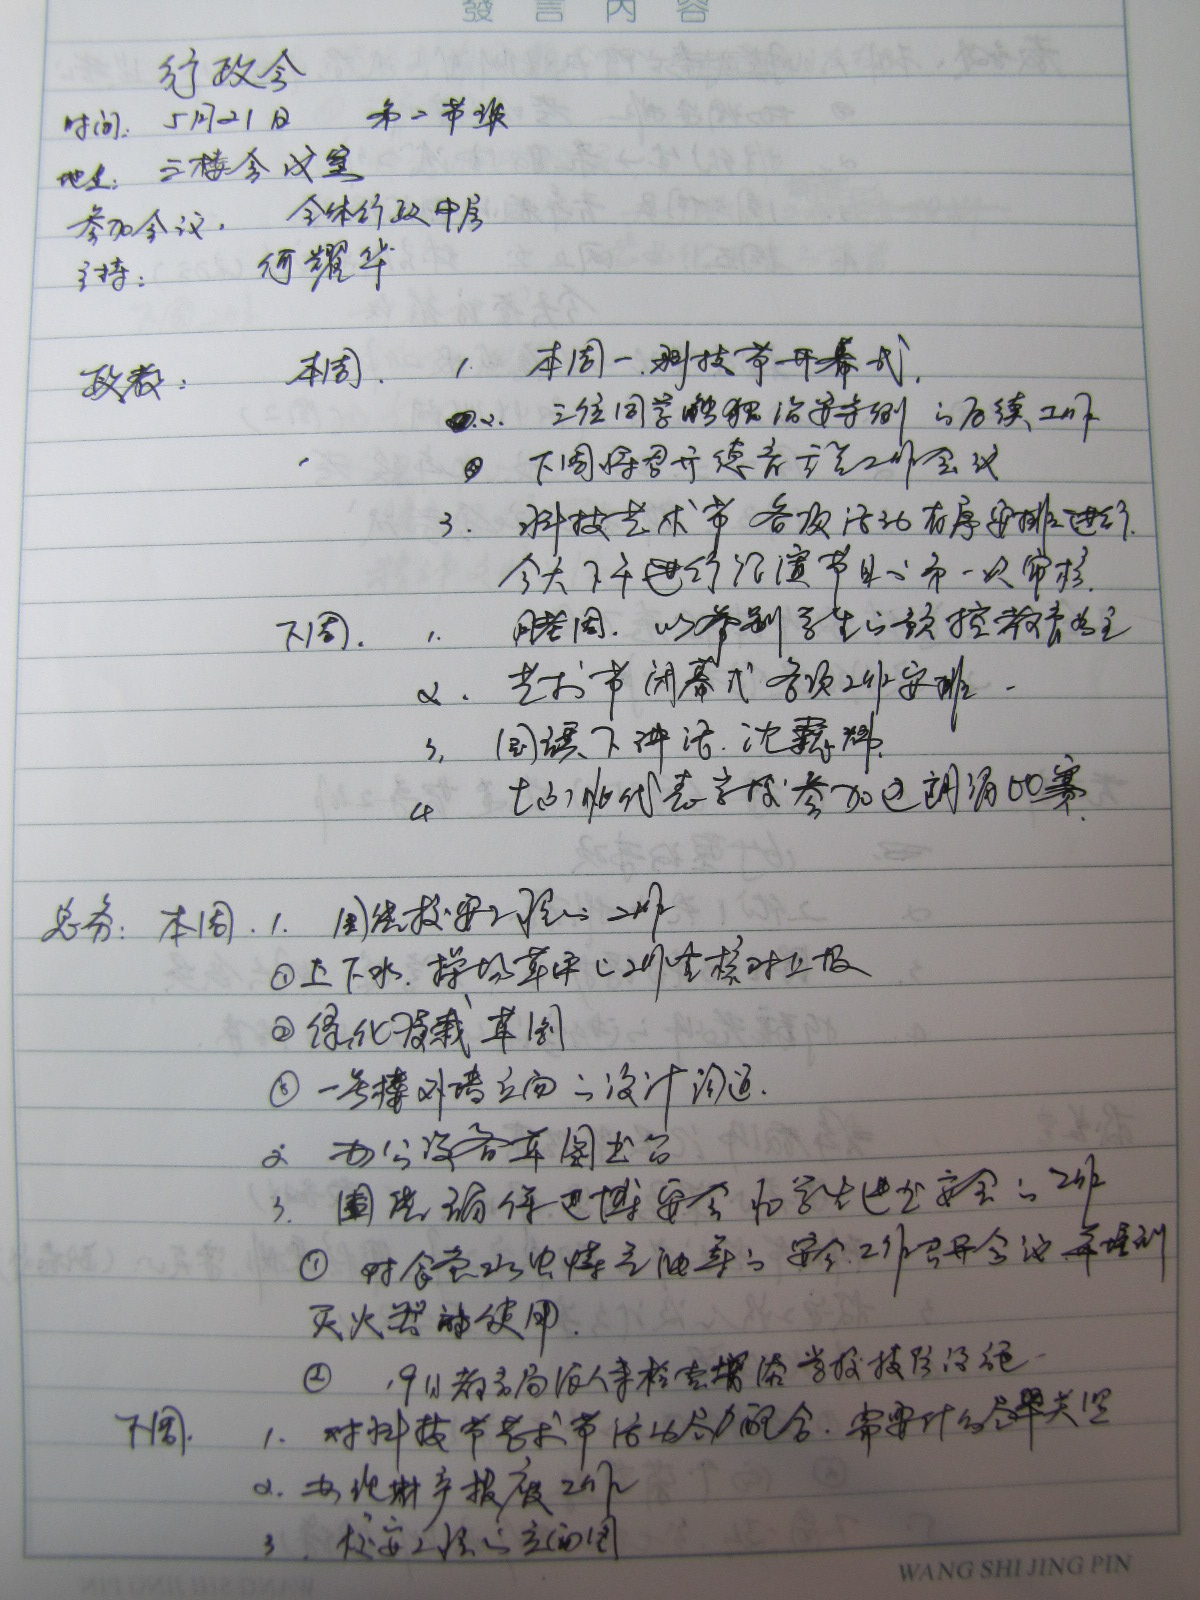 發言內容
行政会
时间: 5月21日 第二节课
地点: 三楼会议室
参加会议: 全体行政中层
主持: 何耀华
政教: 本周. 1. 本周一.科技节开幕式.
2. 三位同学触犯治安条例的后续工作
下周将召开德育 工作会议
3. 科技艺术节各项活动有序安排进行.
今天下午进行 演节目的第一次审核.
下周. 1. 月考周. 以 别学生的预控教育为主
2. 艺术节闭幕式各项工作安排.
3. 国旗下讲话.沈
4 代表学校参加区朗诵比赛.
总务: 本周. 1. 围绕校安工程的工作
①上下水.操场草坪的工作 核对上报
② 绿化移栽草图
③ 一号楼外墙立面的设计沟通.
2 办公设备草图出台
3. 围绕确保世博安全和学生进出安全的工作
① 对食堂 的安全工作召开会议并培训
灭火器的使用.
② 19日教育局派人来检查增添学校技防设施.
下周. 1. 对科技节艺术节活动尽力配合.需要什么尽早关照
2. 办理财产报废工作
3. 校安工程的立面图
WANG SHI JING PIN